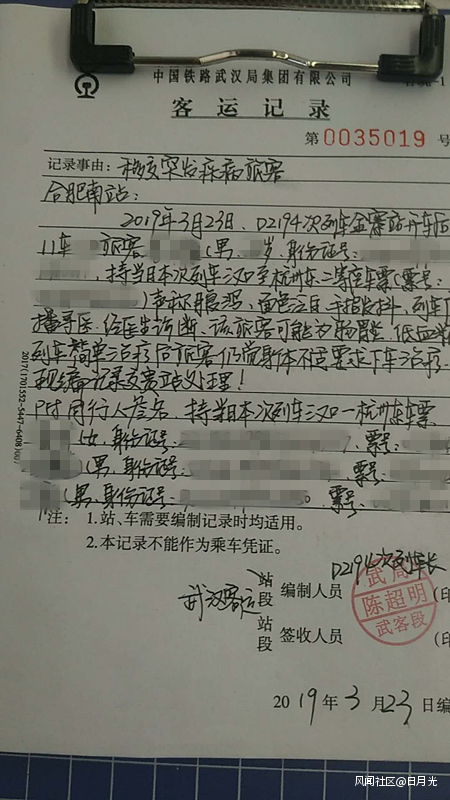 中国铁路武汉局集团有限公司
客运记录
第0035019号
记录事由：移交突发疾病旅客
合肥南站：
2019年3月23日、D2194次列车金寨站开车后
11车 旅客 （男、 岁、身份证号：
，持当日本次列车汉口至杭州东二等座车票（票号：
）声称眼晕、面色泛白、手指发抖、列车广
播寻医、经医生诊断、该旅客可能为 低血糖
列车简单治疗后旅客仍觉身体不适要求下车治疗。
现编记录交贵站处理！
附同行人 ，持当日本次列车汉口-杭州东车票
（女、身份证号： ）、票号：
（男、身份证号： 票号：
（男、身份证号： 。票号
2017(1701552-5447-6408)
注：1.站、车需要编制记录时均适用。
2.本记录不能作为乘车凭证。
D2194次列车长
武汉客运
站
段
编制人员
（印
武局
陈超明
武客段
站
段
签收人员
（印
2019年3月23日编
风闻社区@日月光